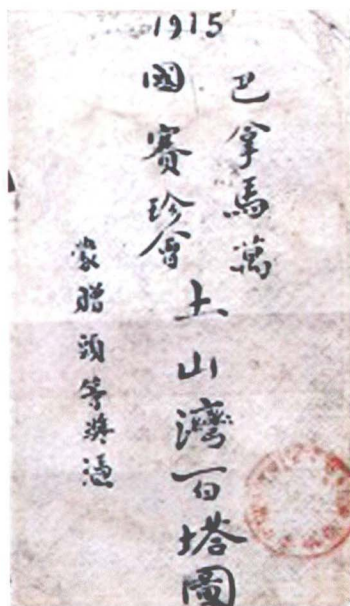 1915
巴拿馬萬
國賽珍會
土山灣百塔圖
蒙贈頭等獎憑